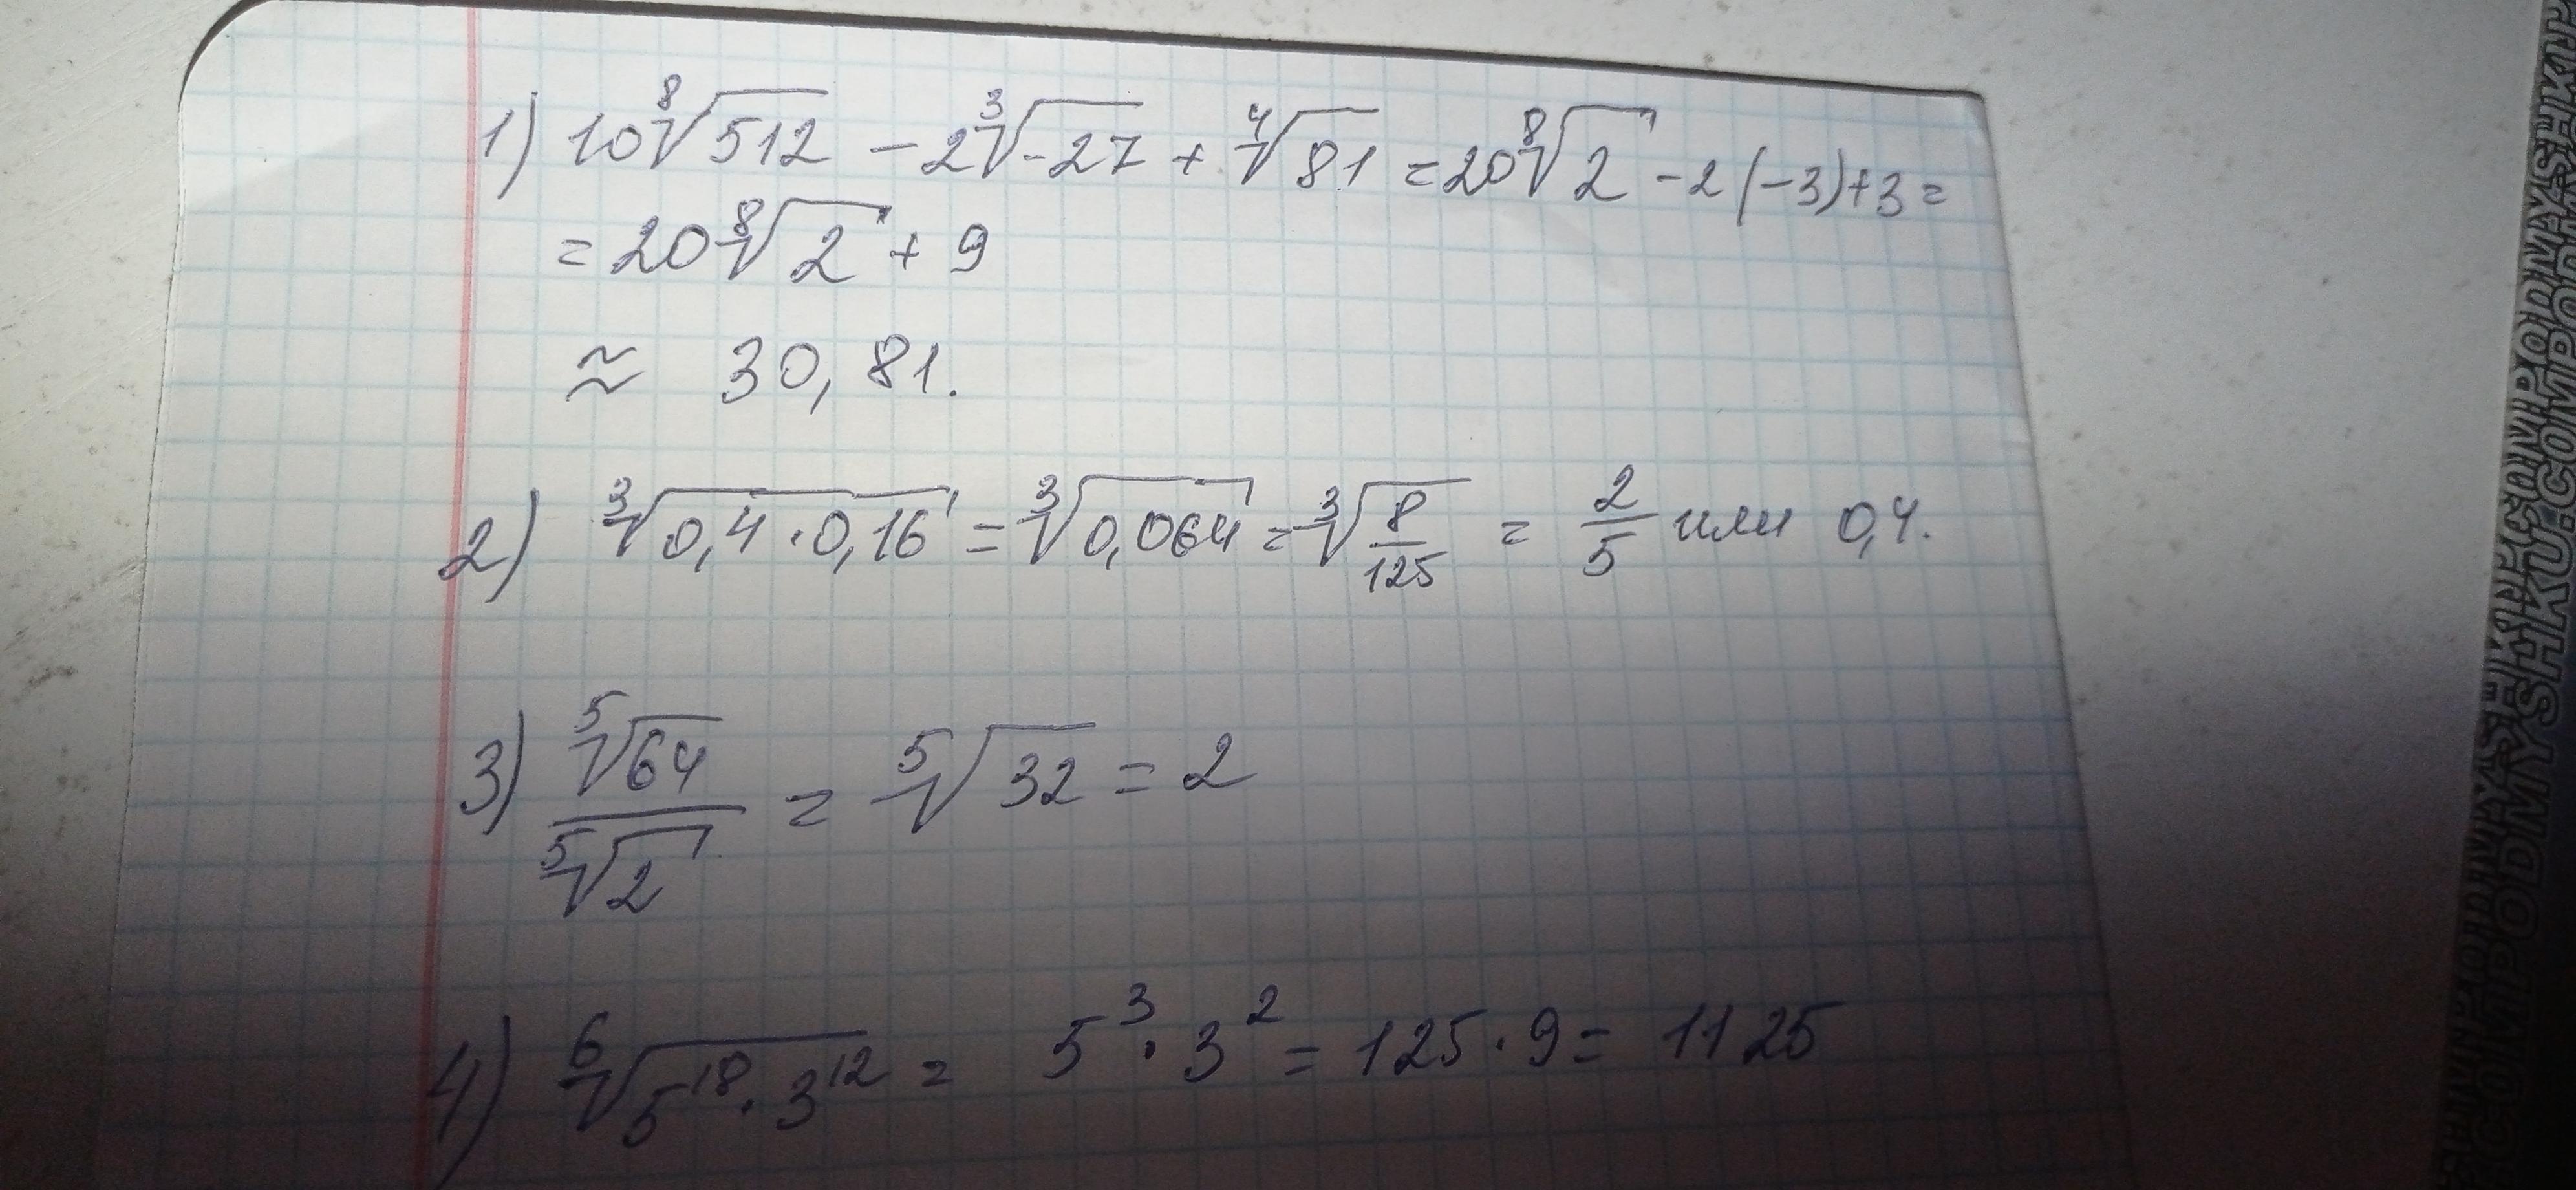 1) 10⁸√512 - 2³√-27 + ⁴√81 = 20⁸√2 - 2(-3)+3 =
= 20⁸√2 + 9
≈ 30,81.
2) ³√0,4·0,16 = ³√0,064 = ³√8/125 = 2/5 или 0,4.
3) ⁵√64/⁵√2 = ⁵√32 = 2
4) ⁶√5¹⁸·3¹² = 5³·3² = 125·9 = 1125